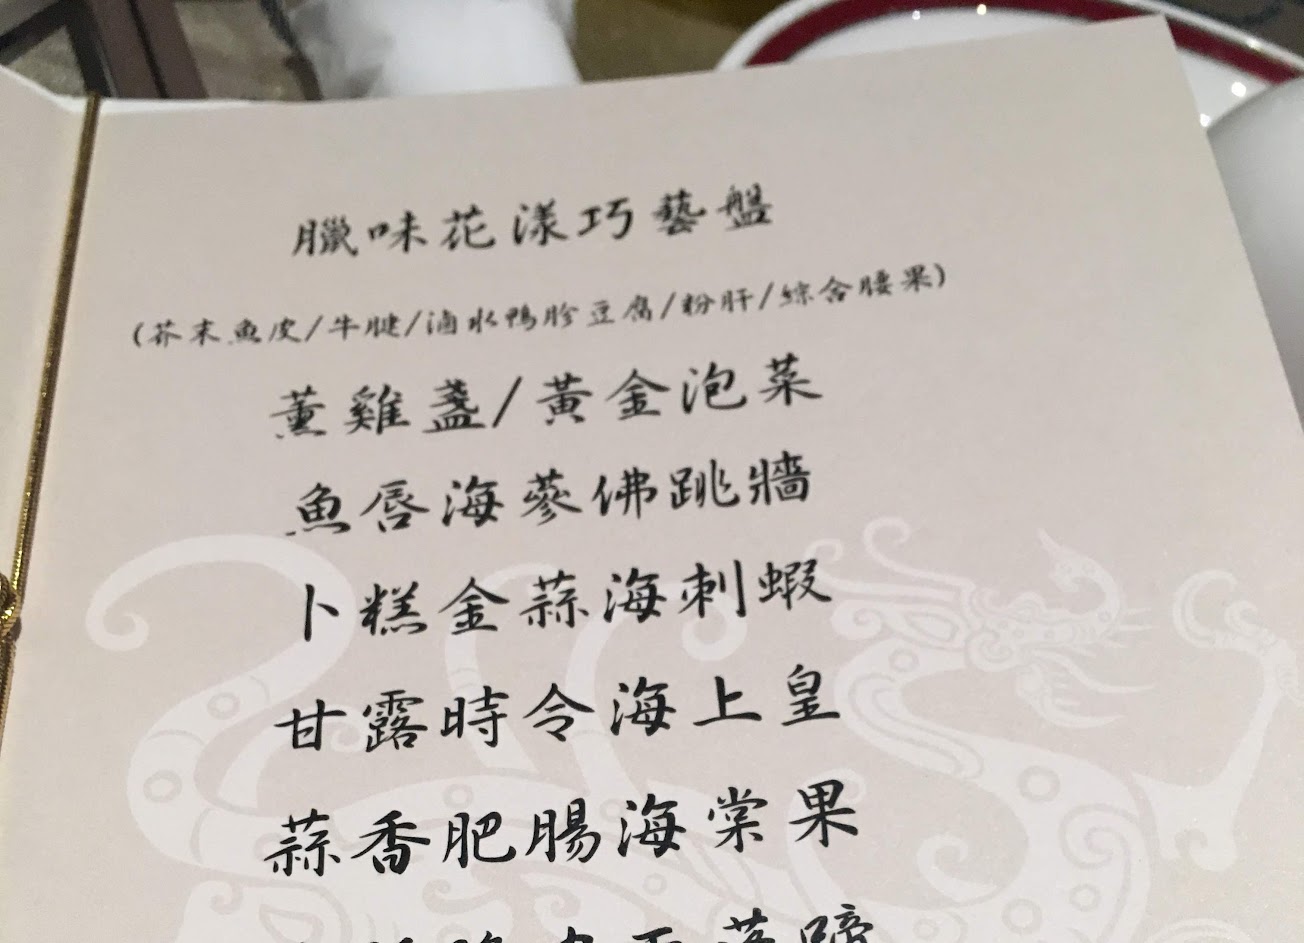 臘味花漾巧藝盤
(芥末魚皮/牛腱/滷水鴨胗豆腐/粉肝/綜合腰果)
薰雞盞/黃金泡菜
魚唇海蔘佛跳牆
卜糕金蒜海刺蝦
甘露時令海上皇
蒜香肥腸海棠果